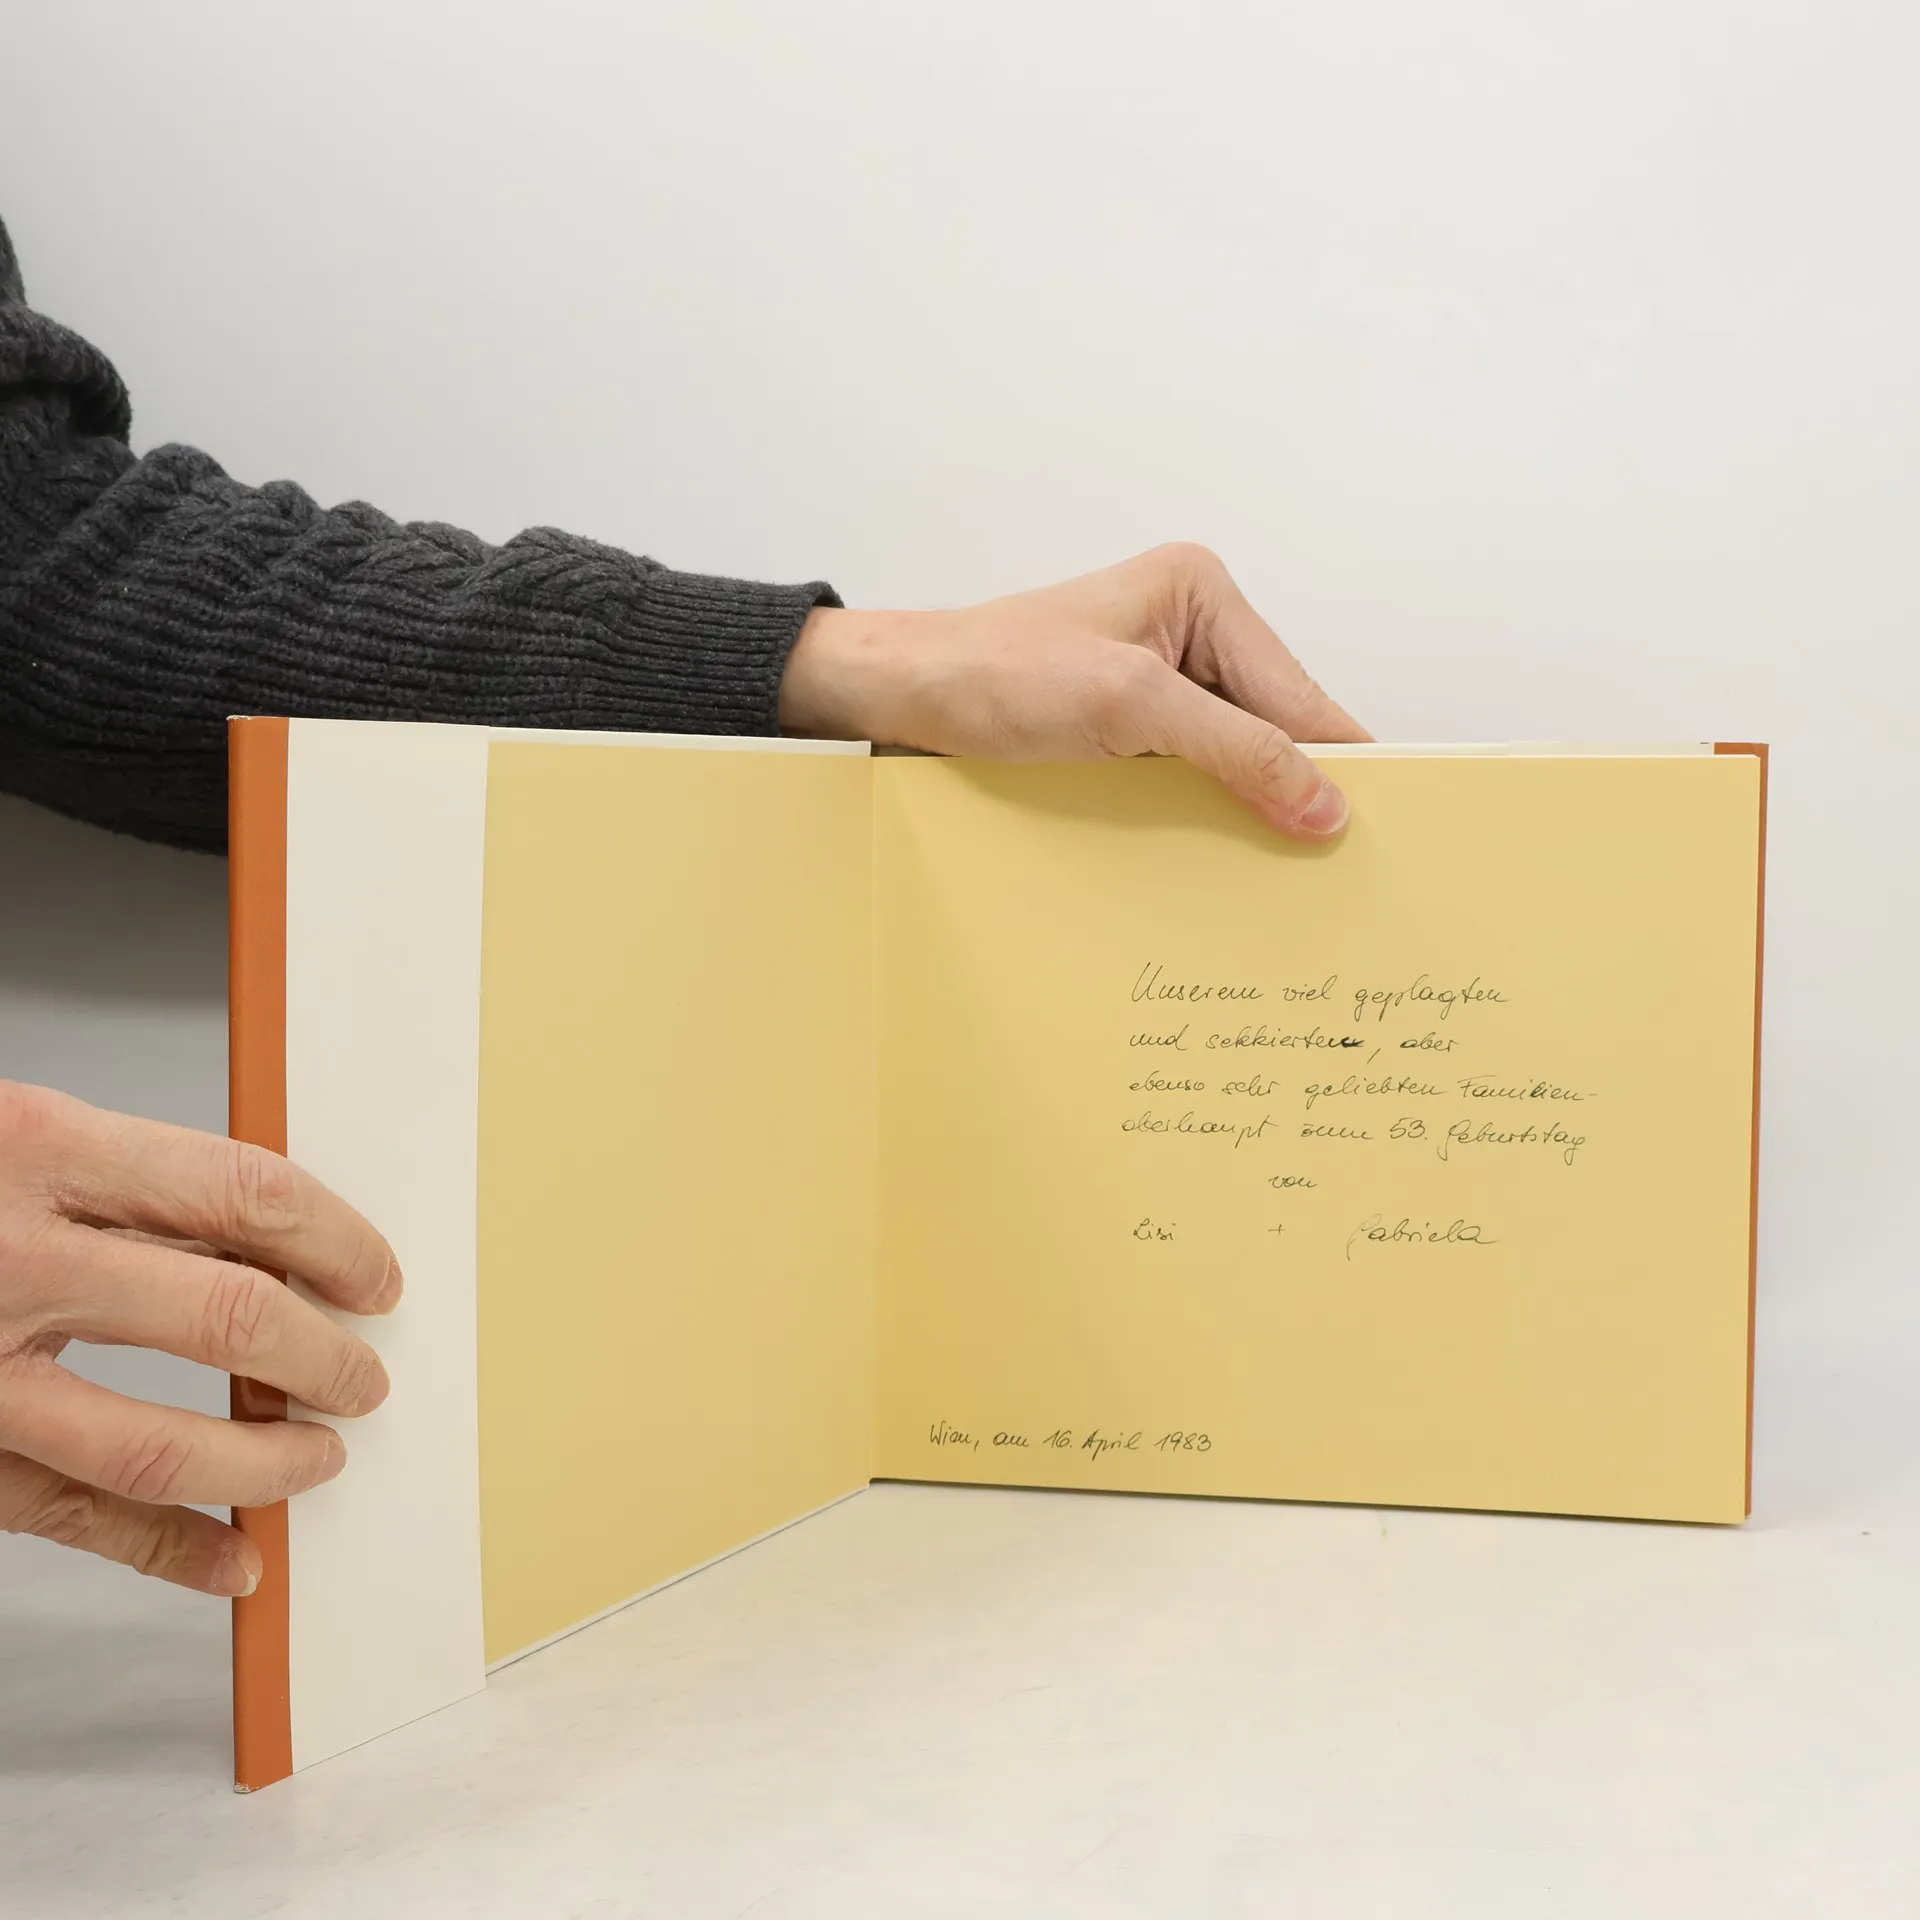 Unserem viel geplagten
und sekkierten, aber
ebenso sehr geliebten Familien-
oberhaupt zum 53. Geburtstag
von
Lisi + Gabriela
Wien, am 16. April 1983